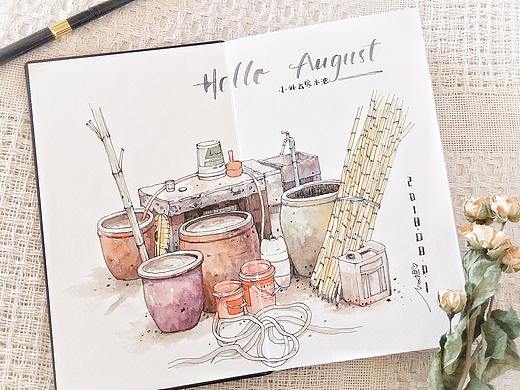 Hello August
小外公家水池
2018.08.01